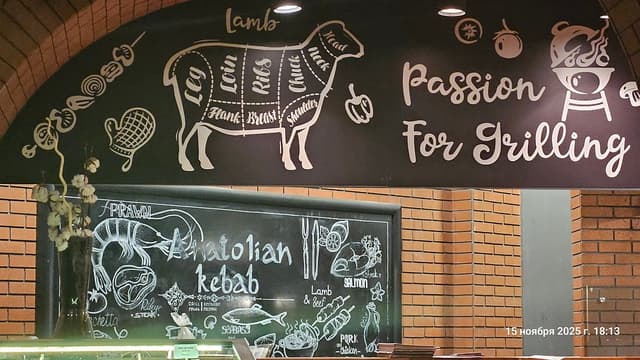 Lamb
Leg
Loin
Ribs
Chuck
Neck
Head
Flank
Breast
Shoulder
Passion
For Grilling
PRAWN
Anatolian
kebab
STEAK
SALMON
Lamb
& Beef
PORK
15 ноября 2025 г. 18:13